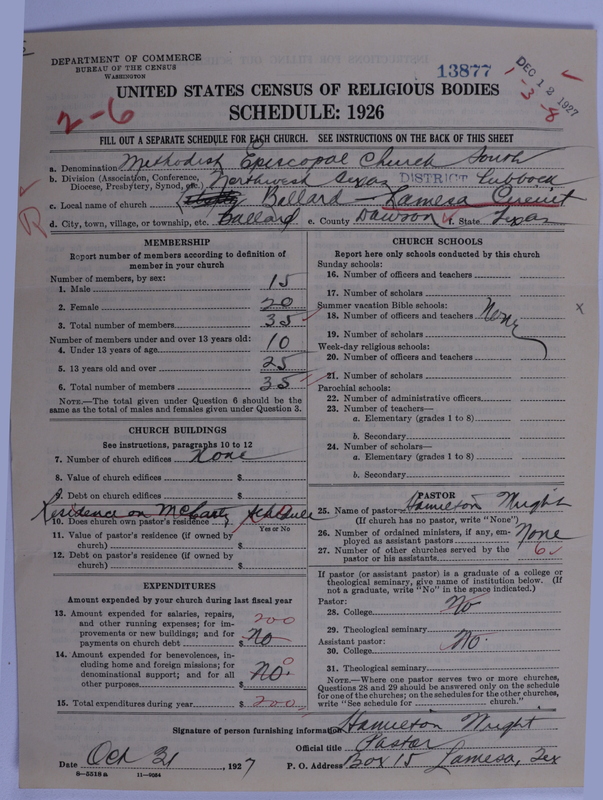 DEPARTMENT OF COMMERCE
BUREAU OF THE CENSUS
WASHINGTON
13877
DEC 12 1927
1-3-8
2-6
UNITED STATES CENSUS OF RELIGIOUS BODIES
SCHEDULE: 1926
FILL OUT A SEPARATE SCHEDULE FOR EACH CHURCH. SEE INSTRUCTIONS ON THE BACK OF THIS SHEET
a. Denomination Methodist Episcopal Church South
b. Division (Association, Conference, Diocese, Presbytery, Synod, etc.) Northwest Texas DISTRICT Lubbock
c. Local name of church Ballard - Lamesa Circuit
R
d. City, town, village, or township, etc. Ballard e. County Dawson f. State Texas
MEMBERSHIP
Report number of members according to definition of
member in your church
Number of members, by sex:
1. Male 15
2. Female 20
3. Total number of members 35
Number of members under and over 13 years old:
4. Under 13 years of age 10
5. 13 years old and over 25
6. Total number of members 35
NOTE.—The total given under Question 6 should be
same as the total of males and females given under Question 3.
CHURCH BUILDINGS
See instructions, paragraphs 10 to 12
7. Number of church edifices None
8. Value of church edifices $
9. Debt on church edifices $
Residence on McCarty Schedule
10. Does church own pastor's residence
Yes or No
11. Value of pastor's residence (if owned by
church) $
12. Debt on pastor's residence (if owned by
church) $
EXPENDITURES
Amount expended by your church during last fiscal year
13. Amount expended for salaries, repairs,
and other running expenses; for im- 200
provements or new buildings; and for
payments on church debt $ No
14. Amount expended for benevolences, in-
cluding home and foreign missions; for 0
denominational support; and for all
other purposes $ No.
15. Total expenditures during year $ 200
CHURCH SCHOOLS
Report here only schools conducted by this church
Sunday schools:
16. Number of officers and teachers
17. Number of scholars
Summer vacation Bible schools:
18. Number of officers and teachers None
x
19. Number of scholars
Week-day religious schools:
20. Number of officers and teachers
21. Number of scholars
Parochial schools:
22. Number of administrative officers
23. Number of teachers—
a. Elementary (grades 1 to 8)
b. Secondary
24. Number of scholars—
a. Elementary (grades 1 to 8)
b. Secondary
PASTOR
25. Name of pastor Hamilton Wright
(If church has no pastor, write "None")
26. Number of ordained ministers, if any, em-
ployed as assistant pastors None
27. Number of other churches served by the
pastor or his assistants 6
If pastor (or assistant pastor) is a graduate of a college or
theological seminary, give name of institution below. (If
not a graduate, write "No" in the space indicated.)
Pastor:
28. College No
29. Theological seminary
Assistant pastor:
30. College No.
31. Theological seminary
NOTE.—Where one pastor serves two or more churches,
Questions 28 and 29 should be answered only on the schedule
for one of the churches; on the schedules for the other churches,
write "See schedule for church."
Signature of person furnishing information Hamilton Wright
Official title Pastor
Date Oct 31, 1927 P. O. Address Box 15 Lamesa, Tex
8-5518a 11-9084